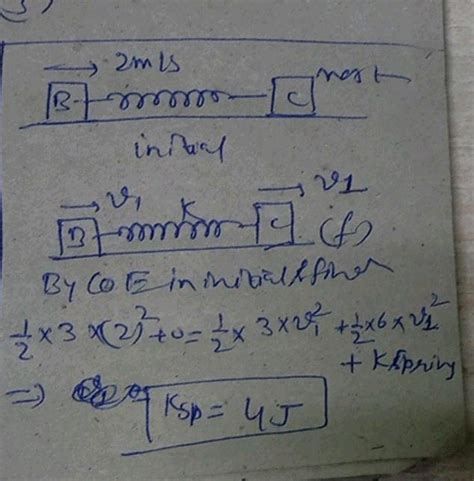 2m/s
B C rest
initial
v₁ v1
B K C (f)
By COE in initial & final
1/2 × 3 × (2)² + 0 = 1/2 × 3 × v₁² + 1/2 × 6 × v1²
+ Kspring
⇒ Ksp = 4J